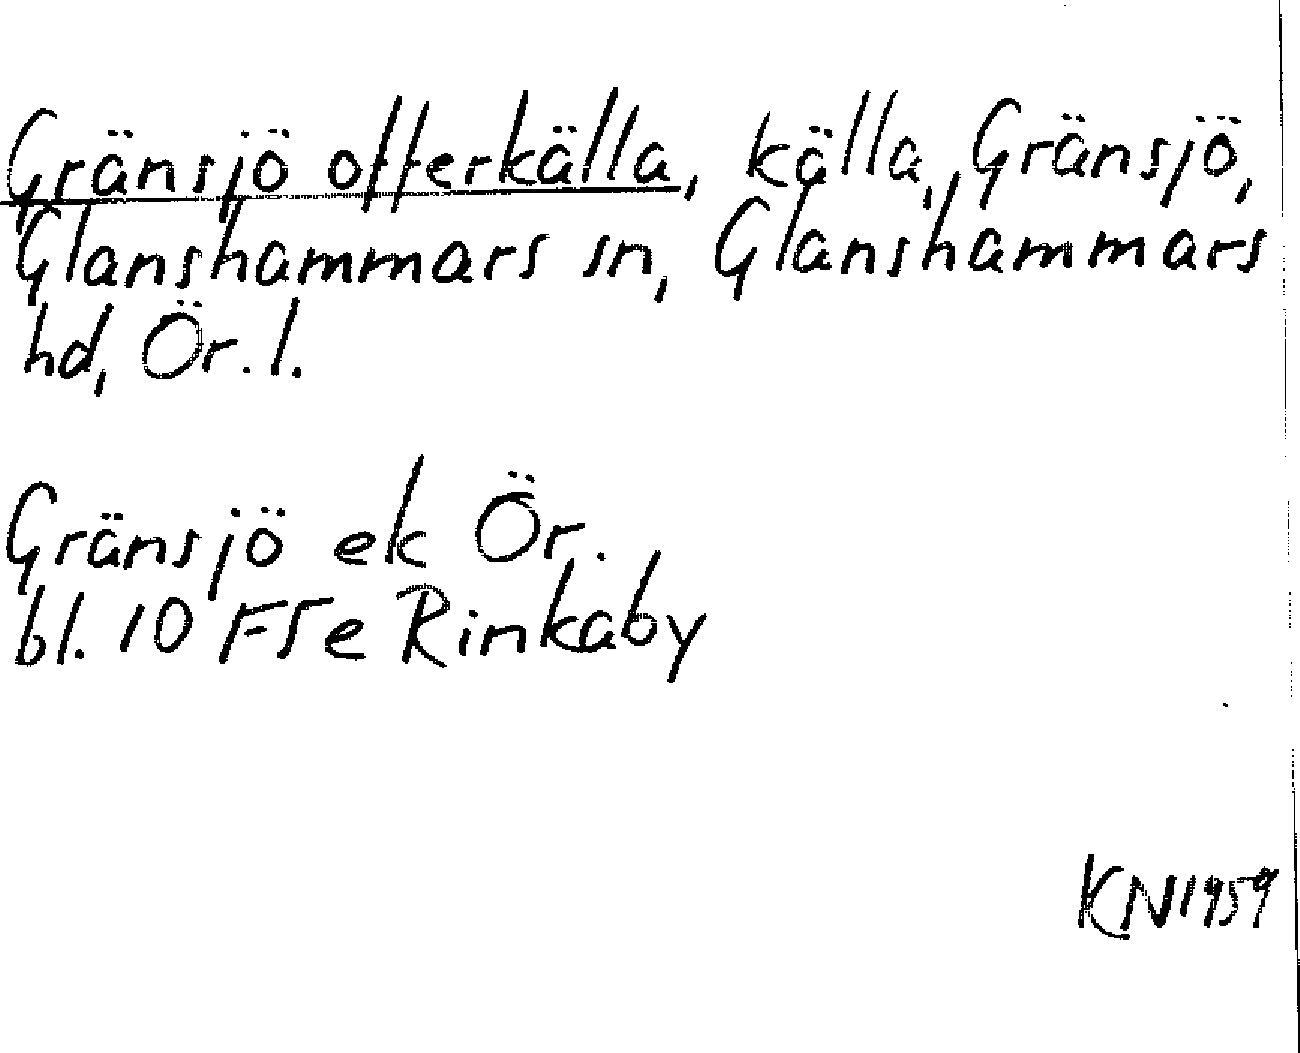 Gränsjö offerkälla, källa, Gränsjö,
Glanshammars sn, Glanshammars
hd, Ör. l.
Gränsjö ek Ör.
bl. 10 F5e Rinkaby
KN1959